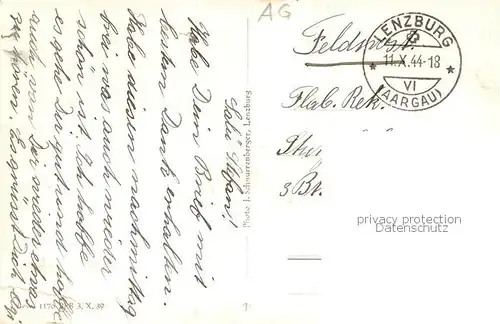 AG
Feldpost.
LENZBURG
11.X.44-18
VI
(AARGAU)
Flab. Rek.
privacy protection
Datenschutz
Photo J. Schwarrenberger, Lenzburg
Stefan!
Habe Dein Brief mit
besten Dank erhalten.
Habe diesen nachmittag
frei was auch wieder
schön ist. Ich hoffe
es gehe Dir gut und hoffe
auch von Dir wieder etwas
zu hören. Es grüsst Dich
3. X. 39